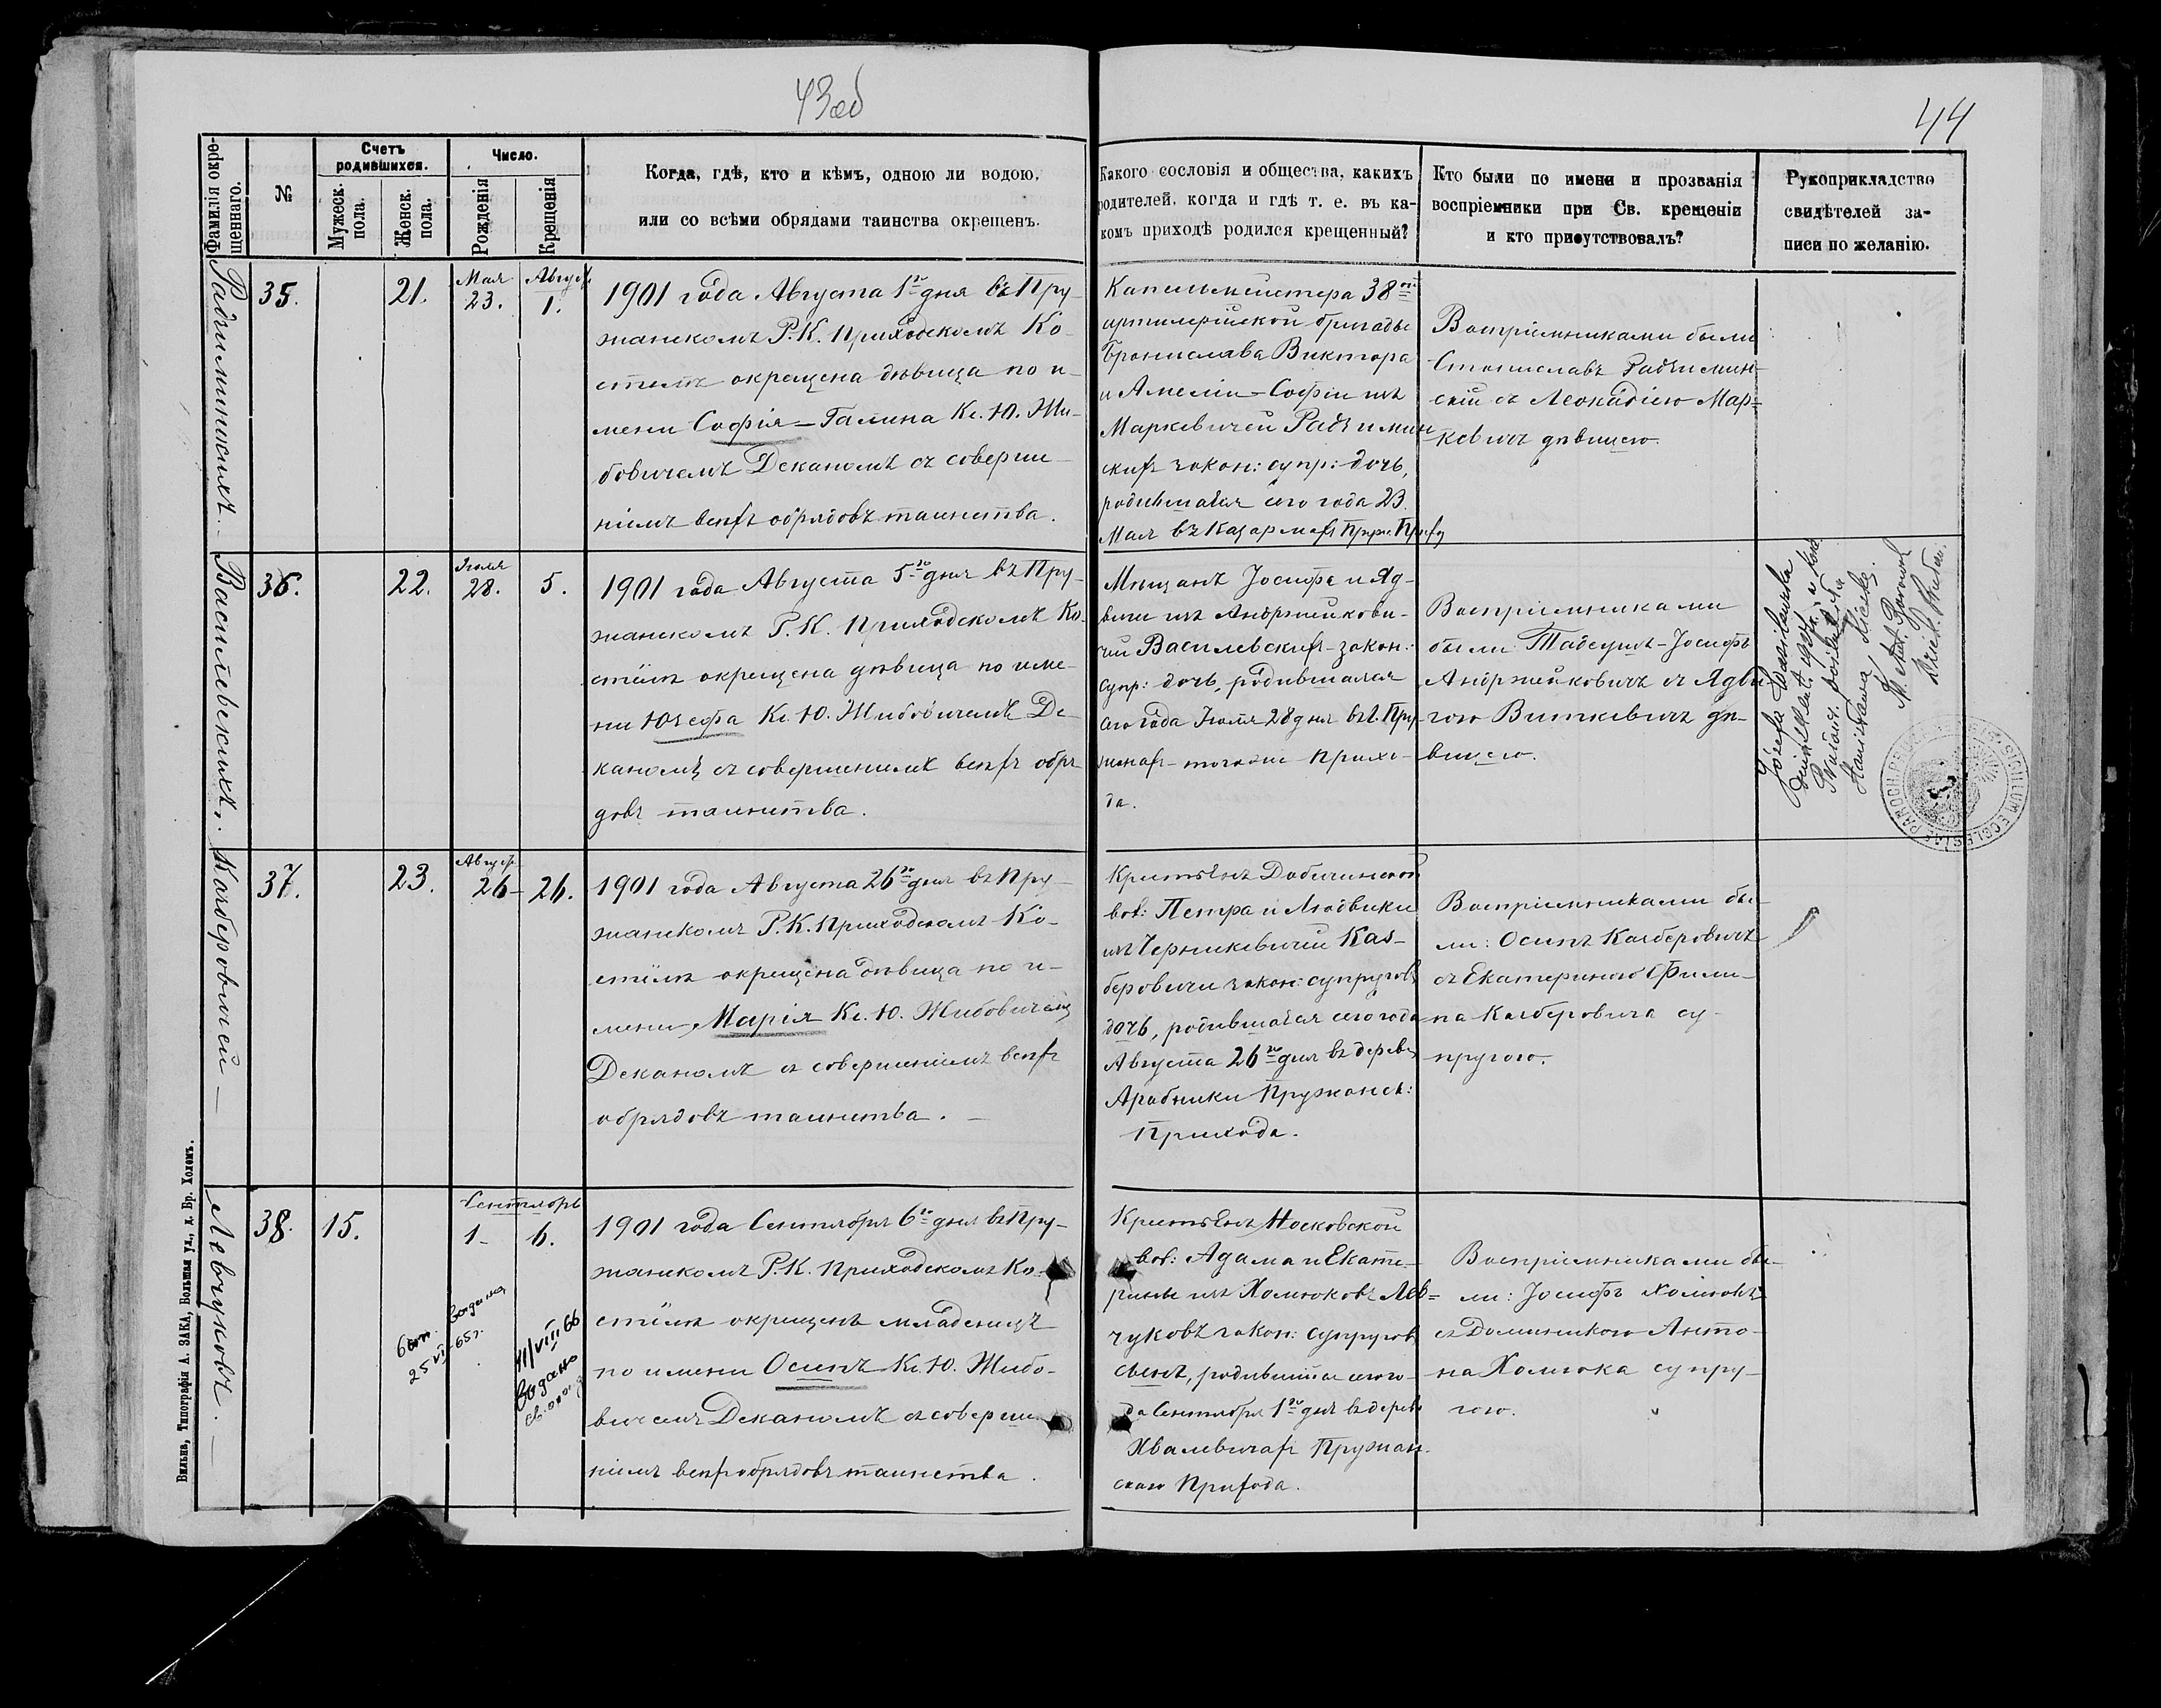 43об
44
Фамилія окрещеннаго.
№
Счетъ родившихся.
Мужеск. пола.
Женск. пола.
Число.
Рожденія
Крещенія
Когда, гдѣ, кто и кѣмъ, одною ли водою,
или со всѣми обрядами таинства окрещенъ.
Какого сословія и общества, какихъ
родителей, когда и гдѣ т. е. въ ка-
комъ приходѣ родился крещенный?
Кто были по имени и прозванія
воспріемники при Св. крещеніи
и кто присутствовалъ?
Рукоприкладство
свидѣтелей за-
писи по желанію.
Радзиминскихъ.
35.
21.
Мая
23.
Август.
1.
1901 года Августа 1го дня въ Пру-
жанскомъ Р.К. Приходскомъ Ко-
стелѣ окрещена дѣвица по и-
мени Софія-Галина Кс. Ю. Жи-
бовичемъ Деканомъ съ соверше-
ніемъ всѣхъ обрядовъ таинства.
Капельмейстера 38ой
артилерійской бригады
Бронислава Виктора
и Амеліи-Софіи изъ
Маркевичей Радзимин-
скихъ закон: супр: дочь,
родившаяся сего года 23
Мая въ Казармахъ
Воспріемниками были
Станиславъ Радзимин-
скій съ Леокадіею Мар-
кевичъ дѣвицею.
Василевскихъ.
36.
22.
Іюля
28.
5.
1901 года Августа 5го дня въ Пру-
жанскомъ Р.К. Приходскомъ Ко-
стёлѣ окрещена дѣвица по име-
ни Юзефа Кс. Ю. Жибовичемъ Де-
каномъ съ совершеніемъ всѣхъ обря-
довъ таинства.
Мѣщанъ Іосифа и Яд-
виги изъ Андржейкови-
чей Василевскихъ-закон:
супр: дочь, родившаяся
сего года Іюля 28 дня въ г. Пру-
жанахъ - тогоже Прихо-
да.
Воспріемниками
были Тадеушъ-Іосифъ
Андржейковичъ съ Ядви-
гою Виткевичъ дѣ-
вицею.
Józefa Wasilewska
SIGILLUM ECCLESIAE PAROCH.
Казберовичей
37.
23.
Август
26-
26.
1901 года Августа 26го дня въ Пру-
жанскомъ Р.К. Приходскомъ Ко-
стёлѣ окрещена дѣвица по и-
мени Марія Кс. Ю. Жибовичемъ
Деканомъ съ совершеніемъ всѣхъ
обрядовъ таинства.
Крестьянъ Добучинской
вол: Петра и Людвики
изъ Черникевичей Каз-
беровичи закон: супруговъ
дочь, родившаяся сего года
Августа 26го дня въ дерев
Арабники Пружанск:
Прихода.
Воспріемниками бы-
ли: Осипъ Казберовичъ
съ Екатериною Фили-
па Казберовича су-
пругою.
Левчуковъ.
38.
15.
Сентября
1-
6.
25 VI-65г.
11/VIII 66
Выдано
1901 года Сентября 6го дня въ Пру-
жанскомъ Р.К. Приходскомъ Ко-
стёлѣ окрещенъ младенецъ
по имени Осипъ Кс. Ю. Жибо-
вичемъ Деканомъ съ соверше-
ніемъ всѣхъ обрядовъ таинства.
Крестьянъ Носковской
вол: Адама и Екате-
рины изъ Холюковъ Лев-
чуковъ закон: супруговъ
сынъ, родившійся сего го-
да Сентября 1го дня въ дерев
Хвалевичахъ Пружан-
скаго Прихода.
Воспріемниками бы-
ли: Іосифъ Холюкъ
съ Доминикою Анто-
на Холюка супру-
гою.
Вильна, Типографія А. ЗАКА, Большая ул., д. Бр. Холомъ.